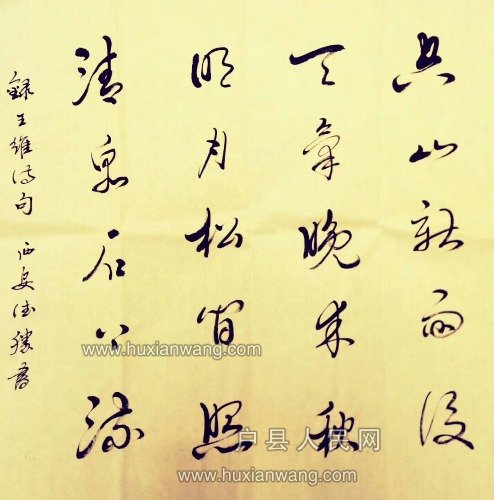 空山新雨后
天气晚来秋
明月松间照
清泉石上流
錄王維诗句 西安德勝書
www.huxianwang.cn
户县人民网
www.huxianwang.cn